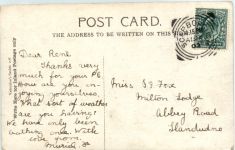 POST CARD.
THE ADDRESS TO BE WRITTEN ON THIS
Dear Rene
Thanks very
much for your P.C.
How are you en-
joying yourselves
What sort of weather
are you having?
We have only been
bathing once. With
love from
Muriel
Miss I. G. Fox
Milton Lodge
Abbey Road
Llandudno